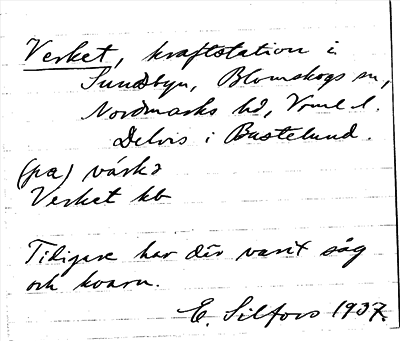 Verket, kraftstation i
Sundbyn, Blomskogs sn,
Nordmarks hd, Vrml. l.
Delvis i Bastelund.
(pa) várkə
Verket kb
Tidigare har där varit såg
och kvarn.
E. Silfors 1937.